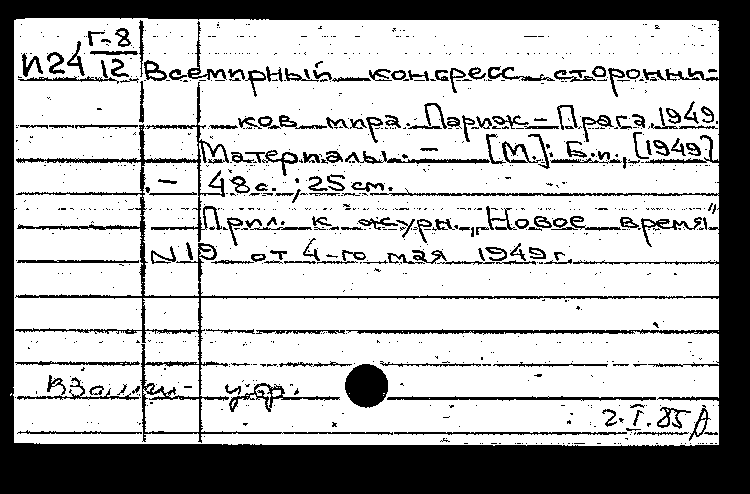 Г-8
И24 12 Всемирный конгресс сторонни-
ков мира. Париж – Прага. 1949.
Материалы. – [М.]: Б.и., [1949]
. – 48 с. ; 25 см.
Прил. к журн. „Новое время"
N19 от 4-го мая 1949 г.
Взамен
2.I.85